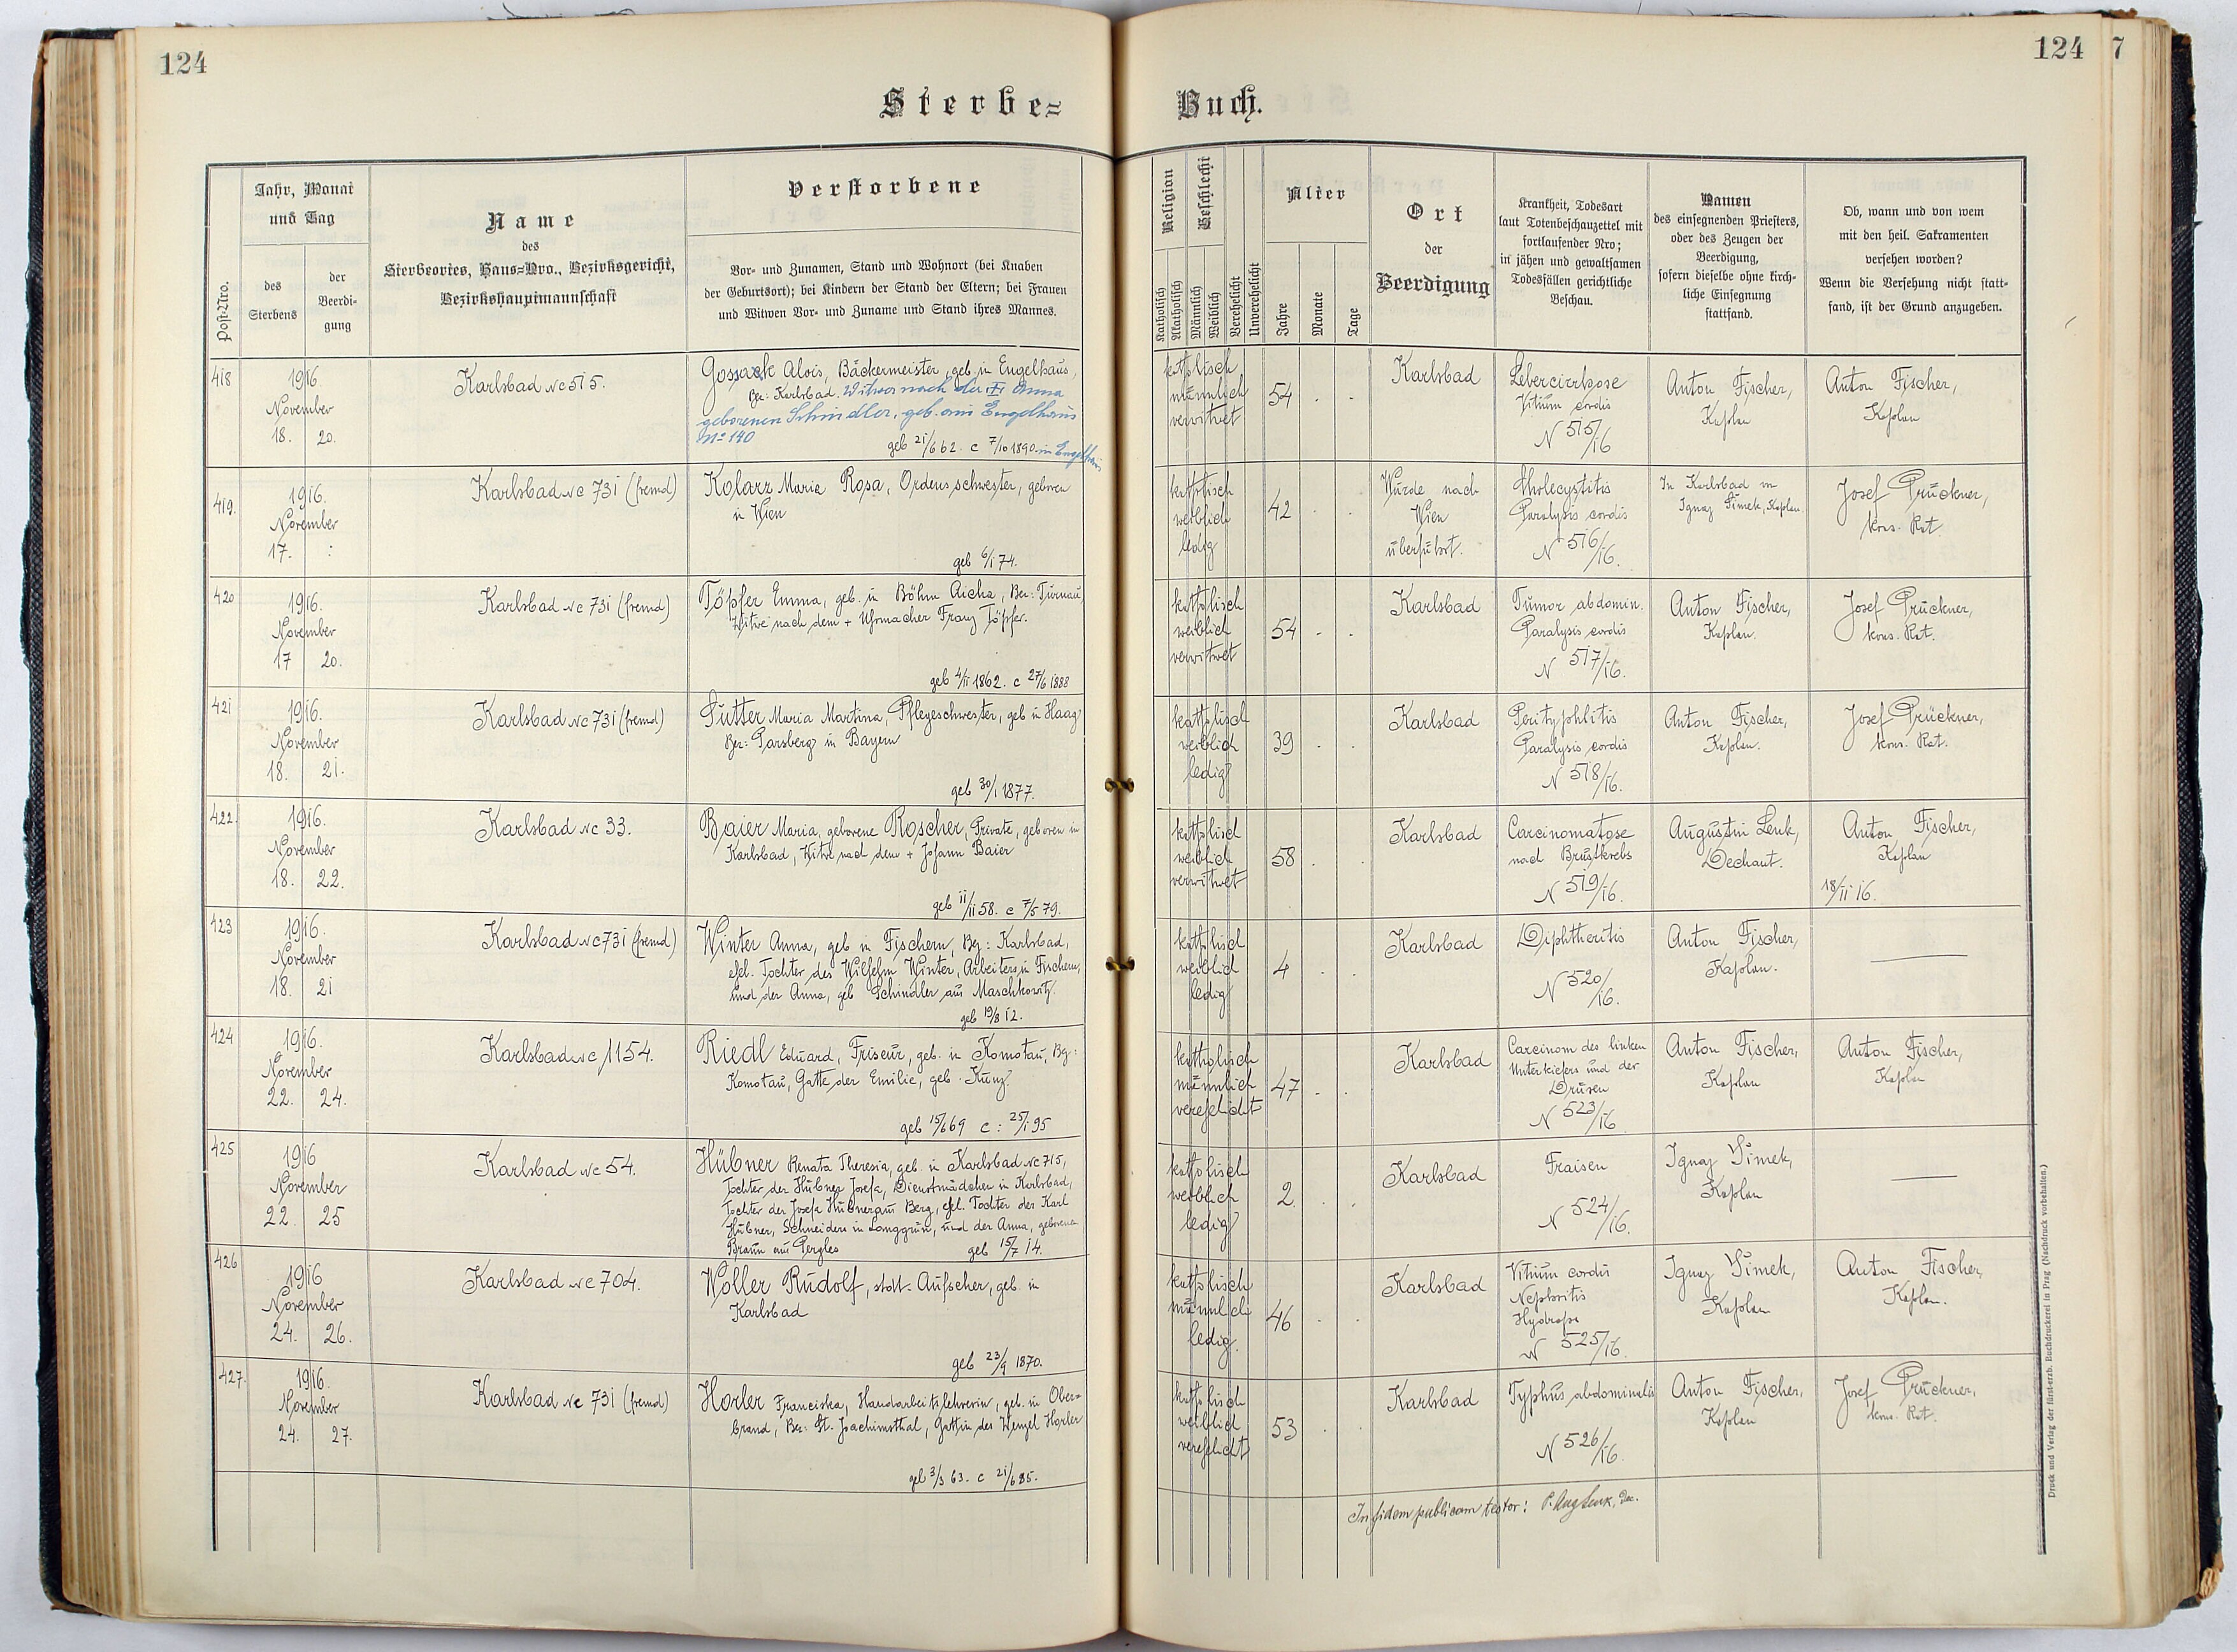 124
124 7
Sterbe=
Buch.
Post-Nro.
Jahr, Monat
und Tag
des
Sterbens
der
Beerdi-
gung
Name
des
Sterbeortes, Haus=Nro., Bezirksgericht,
Bezirkshauptmannschaft
Verstorbene
Vor- und Zunamen, Stand und Wohnort (bei Knaben
der Geburtsort); bei Kindern der Stand der Eltern; bei Frauen
und Witwen Vor- und Zuname und Stand ihres Mannes.
Religion
Katholisch
Akatholisch
Geschlecht
Männlich
Weiblich
Verehelicht
Unverehelicht
Alter
Jahre
Monate
Tage
Ort
der
Beerdigung
Krankheit, Todesart
laut Totenbeschauzettel mit
fortlaufender Nro;
in jähen und gewaltsamen
Todesfällen gerichtliche
Beschau.
Namen
des einsegnenden Priesters,
oder des Zeugen der
Beerdigung,
sofern dieselbe ohne kirch-
liche Einsegnung
stattfand.
Ob, wann und von wem
mit den heil. Sakramenten
versehen worden?
Wenn die Versehung nicht statt-
fand, ist der Grund anzugeben.
418
1916.
November
18. 20.
Karlsbad Nc 515.
Gossack Alois, Bäckermeister, geb. in Engelhaus,
Bez: Karlsbad. Witwer nach der Anna
geborenen Schindler, geb. aus Engelhaus
No 140
geb 21/6 62. c 7/10 1890 in Engelhaus
katholisch
männlich
verwitwet
54 . .
Karlsbad
Lebercirrhose
Vitium cordis
N 515/16
Anton Fischer,
Kaplan
Anton Fischer,
Kaplan
419.
1916.
November
17. :
Karlsbad Nc 731 (fremd)
Kolarz Maria Rosa, Ordensschwester, geboren
in Wien
geb 6/1 74.
katholisch
weiblich
ledig
42 . .
Wurde nach
Wien
überführt.
Cholecystitis
Paralysis cordis
N 516/16.
In Karlsbad von
Ignaz Šimek, Kaplan.
Josef Prückner,
kons. Rat
420
1916.
November
17 20.
Karlsbad Nc 731 (fremd)
Töpfer Emma, geb. in Böhm Aicha, Bez: Turnau
Witwe nach dem + Uhrmacher Franz Töpfer.
geb 4/11 1862. c 27/6 1888
katholisch
weiblich
verwitwet
54 . .
Karlsbad
Tumor abdomin.
Paralysis cordis
N 517/16.
Anton Fischer,
Kaplan.
Josef Prückner,
kons. Rat.
421
1916.
November
18. 21.
Karlsbad Nc 731 (fremd)
Sutter Maria Martina, Pflegeschwester, geb in Haag
Bez: Parsberg in Bayern
geb 30/1 1877.
katholisch
weiblich
ledig
39 . .
Karlsbad
Perityphlitis
Paralysis cordis
N 518/16.
Anton Fischer,
Kaplan.
Josef Prückner,
kons. Rat.
422.
1916.
November
18. 22.
Karlsbad Nc 33.
Baier Maria, geborene Roscher, Private, geboren in
Karlsbad, Witwe nach dem + Johann Baier
geb 11/11 58. c 7/5 79.
katholisch
weiblich
verwitwet
58 . .
Karlsbad
Carcinomatose
nach Brustkrebs
N 519/16.
Augustin Lenk,
Dechant.
Anton Fischer,
Kaplan
18/11 16.
423
1916.
November
18. 21
Karlsbad Nc 731 (fremd)
Winter Anna, geb in Fischern, Bez: Karlsbad,
ehel. Tochter des Wilhelm Winter, Arbeiters in Fischern,
und der Anna, geb Schindler aus Maschkowitz.
geb 19/8 12.
katholisch
weiblich
ledig
4 . .
Karlsbad
Diphtheritis
N 520/16.
Anton Fischer,
Kaplan.
424
1916.
November
22. 24.
Karlsbad Nc 1154.
Riedl Eduard, Friseur, geb. in Komotau, Bez:
Komotau, Gatte der Emilie, geb. Kunz.
geb 15/6 69 c: 25/1 95
katholisch
männlich
verehelicht
47 . .
Karlsbad
Carcinom des linken
Unterkiefers und der
Drüsen
N 523/16
Anton Fischer,
Kaplan
Anton Fischer,
Kaplan
425
1916
November
22. 25
Karlsbad Nc 54.
Hübner Renata Theresia, geb. in Karlsbad Nc 715,
Tochter der Hübner Josefa, Dienstmädchen in Karlsbad,
Tochter der Josefa Hübner aus Berg, ehel. Tochter des Karl
Hübner, Schneiders in Langgrün, und der Anna, geborenen
Braun aus Pergles geb 15/7 14.
katholisch
weiblich
ledig
2. . .
Karlsbad
Fraisen
N 524/16.
Ignaz Šimek,
Kaplan
426
1916
November
24. 26.
Karlsbad Nc 704.
Woller Rudolf, stadt-Aufseher, geb. in
Karlsbad
geb 23/9 1870.
katholisch
männlich
ledig.
46 . .
Karlsbad
Vitium cordis
Nephritis
Hydrops
N 525/16.
Ignaz Šimek,
Kaplan
Anton Fischer,
Kaplan.
427.
1916.
November
24. 27.
Karlsbad Nc 731 (fremd)
Horler Franciska, Handarbeitslehrerin, geb. in Ober=
brand, Bez: St. Joachimsthal, Gattin des Wenzel Horler
geb 3/3 63. c 21/6 85.
katholisch
weiblich
verehelicht
53 . .
Karlsbad
Typhus abdominalis
N 526/16.
Anton Fischer,
Kaplan
Josef Prückner,
kons. Rat.
In fidem publicam testor: P. Aug Lenk, Dec.
Druck und Verlag der fürst-erzb. Buchdruckerei in Prag (Nachdruck vorbehalten.)